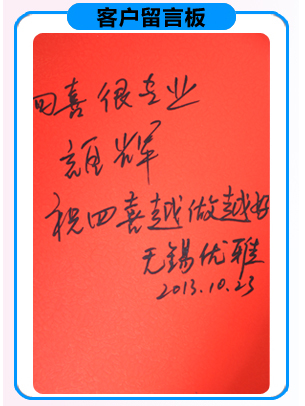 客户留言板
四喜很专业
辉
祝四喜越做越好
无锡优雅
2013.10.23